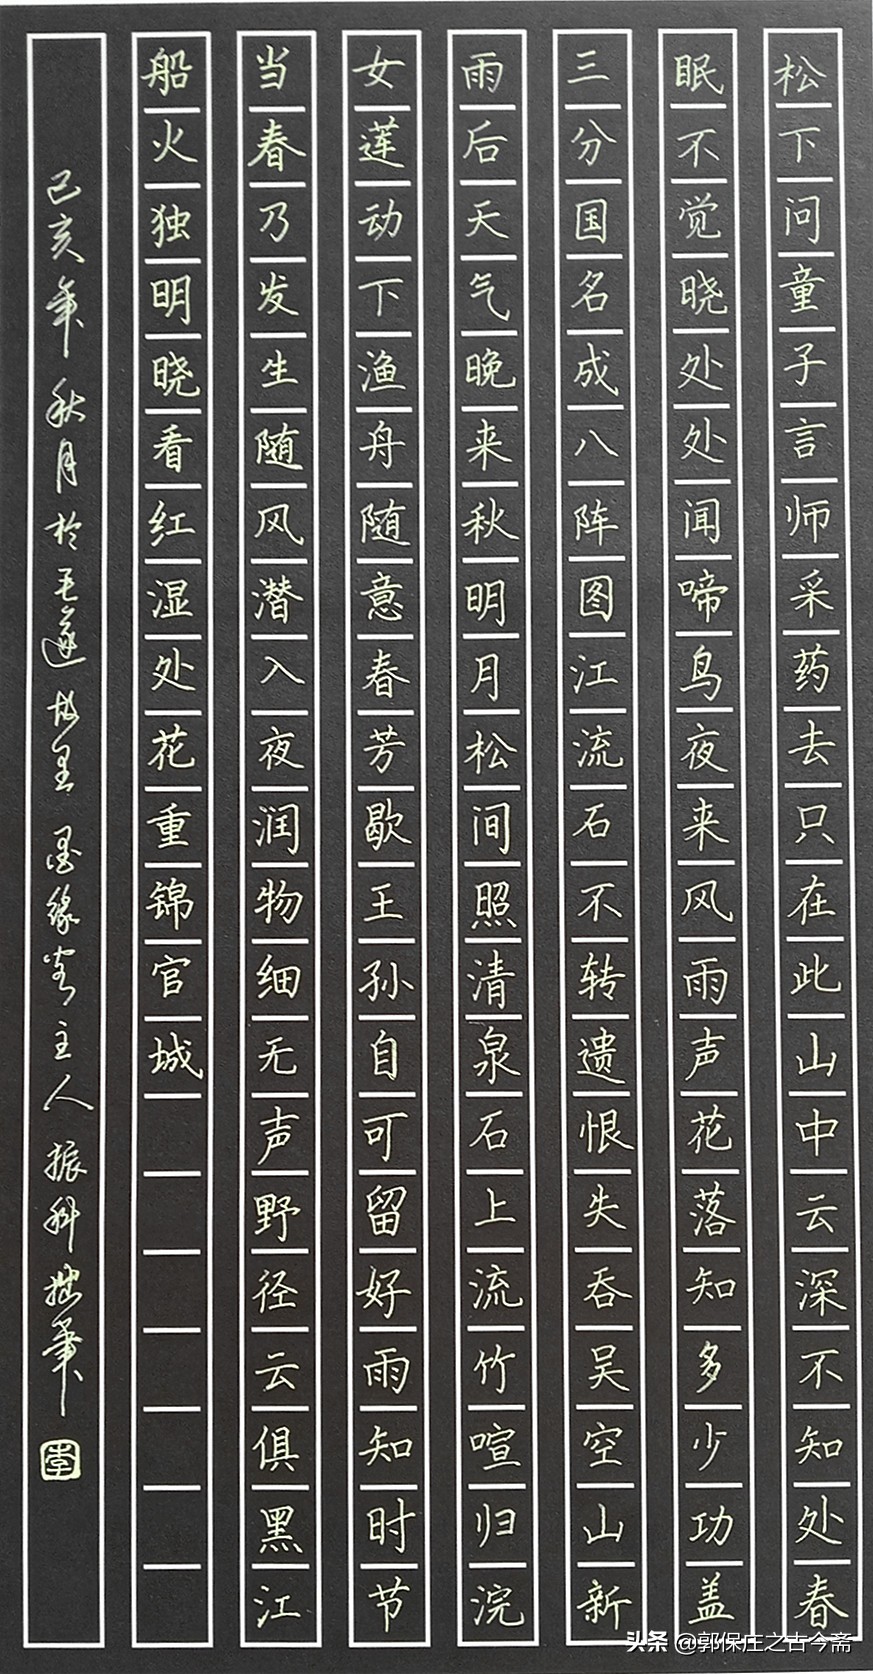 松下问童子言师采药去只在此山中云深不知处春
眠不觉晓处处闻啼鸟夜来风雨声花落知多少功盖
三分国名成八阵图江流石不转遗恨失吞吴空山新
雨后天气晚来秋明月松间照清泉石上流竹喧归浣
女莲动下渔舟随意春芳歇王孙自可留好雨知时节
当春乃发生随风潜入夜润物细无声野径云俱黑江
船火独明晓看红湿处花重锦官城
己亥年秋月於毛遂故里墨缘斋主人振科拙笔
头条 @郭保庄之古今斋